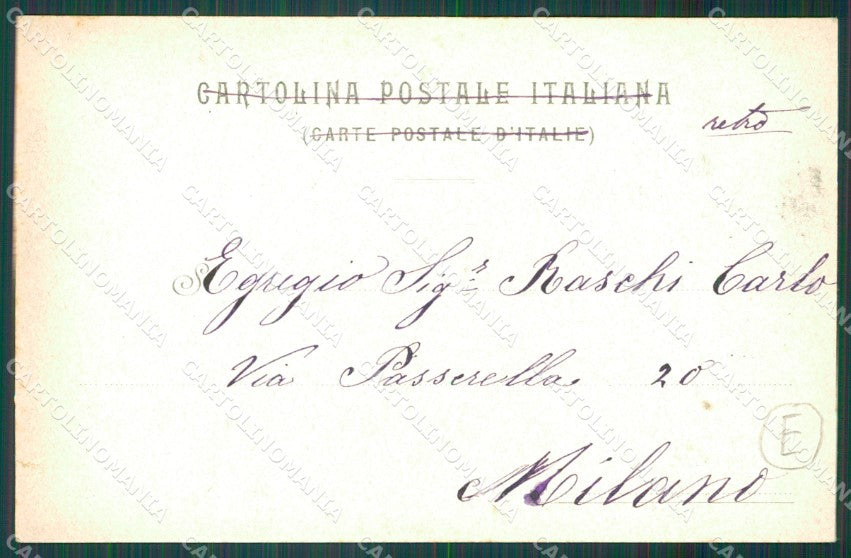 CARTOLINA POSTALE ITALIANA
(CARTE POSTALE D'ITALIE)
retro
Egregio Sigr Raschi Carlo
Via Passerella 20
Milano
E
CARTOLINOMANIA